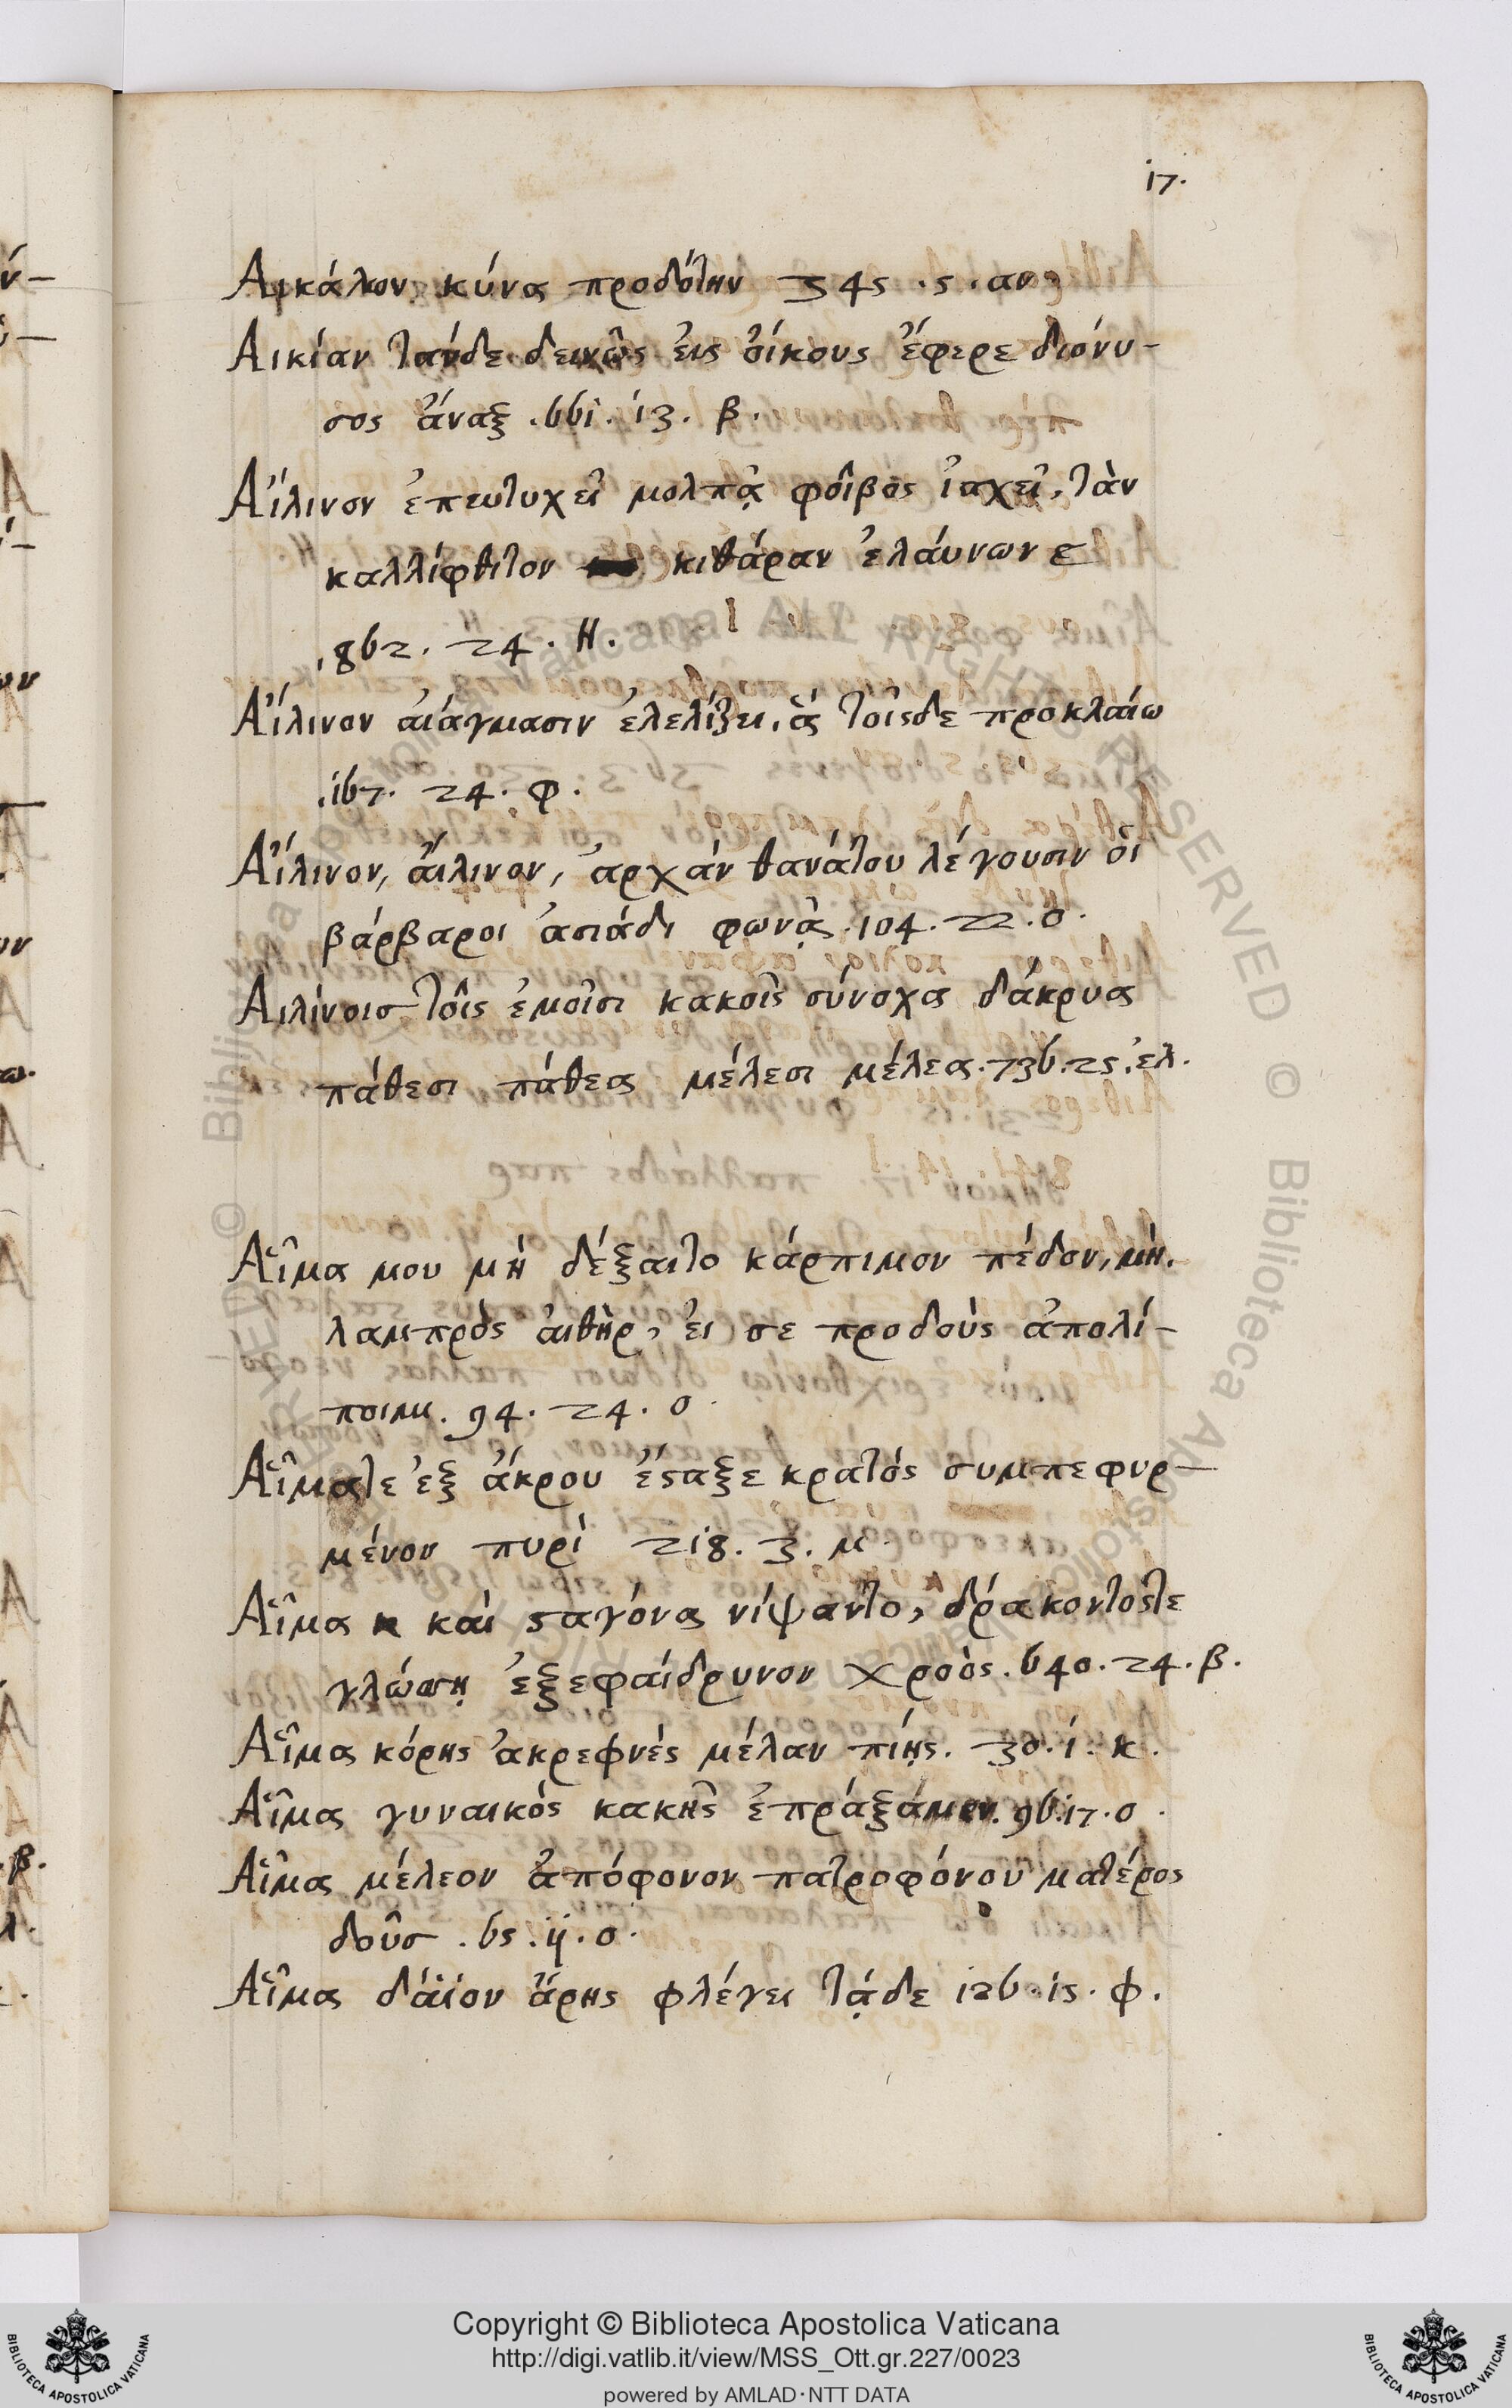 17.
Αικάλον, κύνα προδότην 345 . 5 . αν
Αικίαν τάνδε δεινῶς ἐις ὀίκους ἔφερε διόνυ-
σος ἄναξ . 661 . 13 . β .
Ἄίλινον ἐπευτυχεῖ μολπᾷ φοῖβος ἰαχεῖ, τὰν
καλλίφθιτον κιθάραν ἐλάυνων
. 862 . 24 . Η .
Ἄίλινον ἀιάγμασιν ἐλελίζει, ἃ τοῖςδε προκλαίω
. 167 . 24 . φ .
Ἄίλινον, ἄιλινον, ἀρχὰν θανάτου λέγουσιν ὁι
βάρβαροι ἀσιάδι φωνᾷ . 104 . 22 . ο .
Αιλίνοισ τοῖς ἐμοῖσι κακοῖς σύνοχα δάκρυα
πάθεσι πάθεα μέλεσι μέλεα . 736 . 25 . ἑλ .
Αἷμα μου μὴ δέξαιτο κάρπιμον πέδον, μὴ.
λαμπρὸς ἀιθὴρ, ἐι σε προδοὺς ἀπολί-
ποιμι . 94 . 24 . ο .
Αἷμάτε ἐξ ἄκρου ἔςαξε κρατός συμπεφυρ-
μένον πυρί 218 . 3 . μ .
Αἷμα και ςαγόνα νίψαντο, δράκοντόςτε
γλώσση ἐξεφαίδρυνον χροὸς . 640 . 24 . β .
Αἷμα κόρης ἀκρεφνές μέλαν πίῃς . 30 . 1 . κ .
Αἷμα γυναικὸς κακῆς ἐπράξάμεν . 96 . 17 . ο .
Αἷμα μέλεον ἀπόφονον πατροφόνου ματέρος
δοῦσ . 65 . 11 . ο .
Αἷμα δάϊον ἄρης φλέγει τᾷδε 126 . 15 . φ .
Copyright © Biblioteca Apostolica Vaticana
http://digi.vatlib.it/view/MSS_Ott.gr.227/0023
powered by AMLAD・NTT DATA